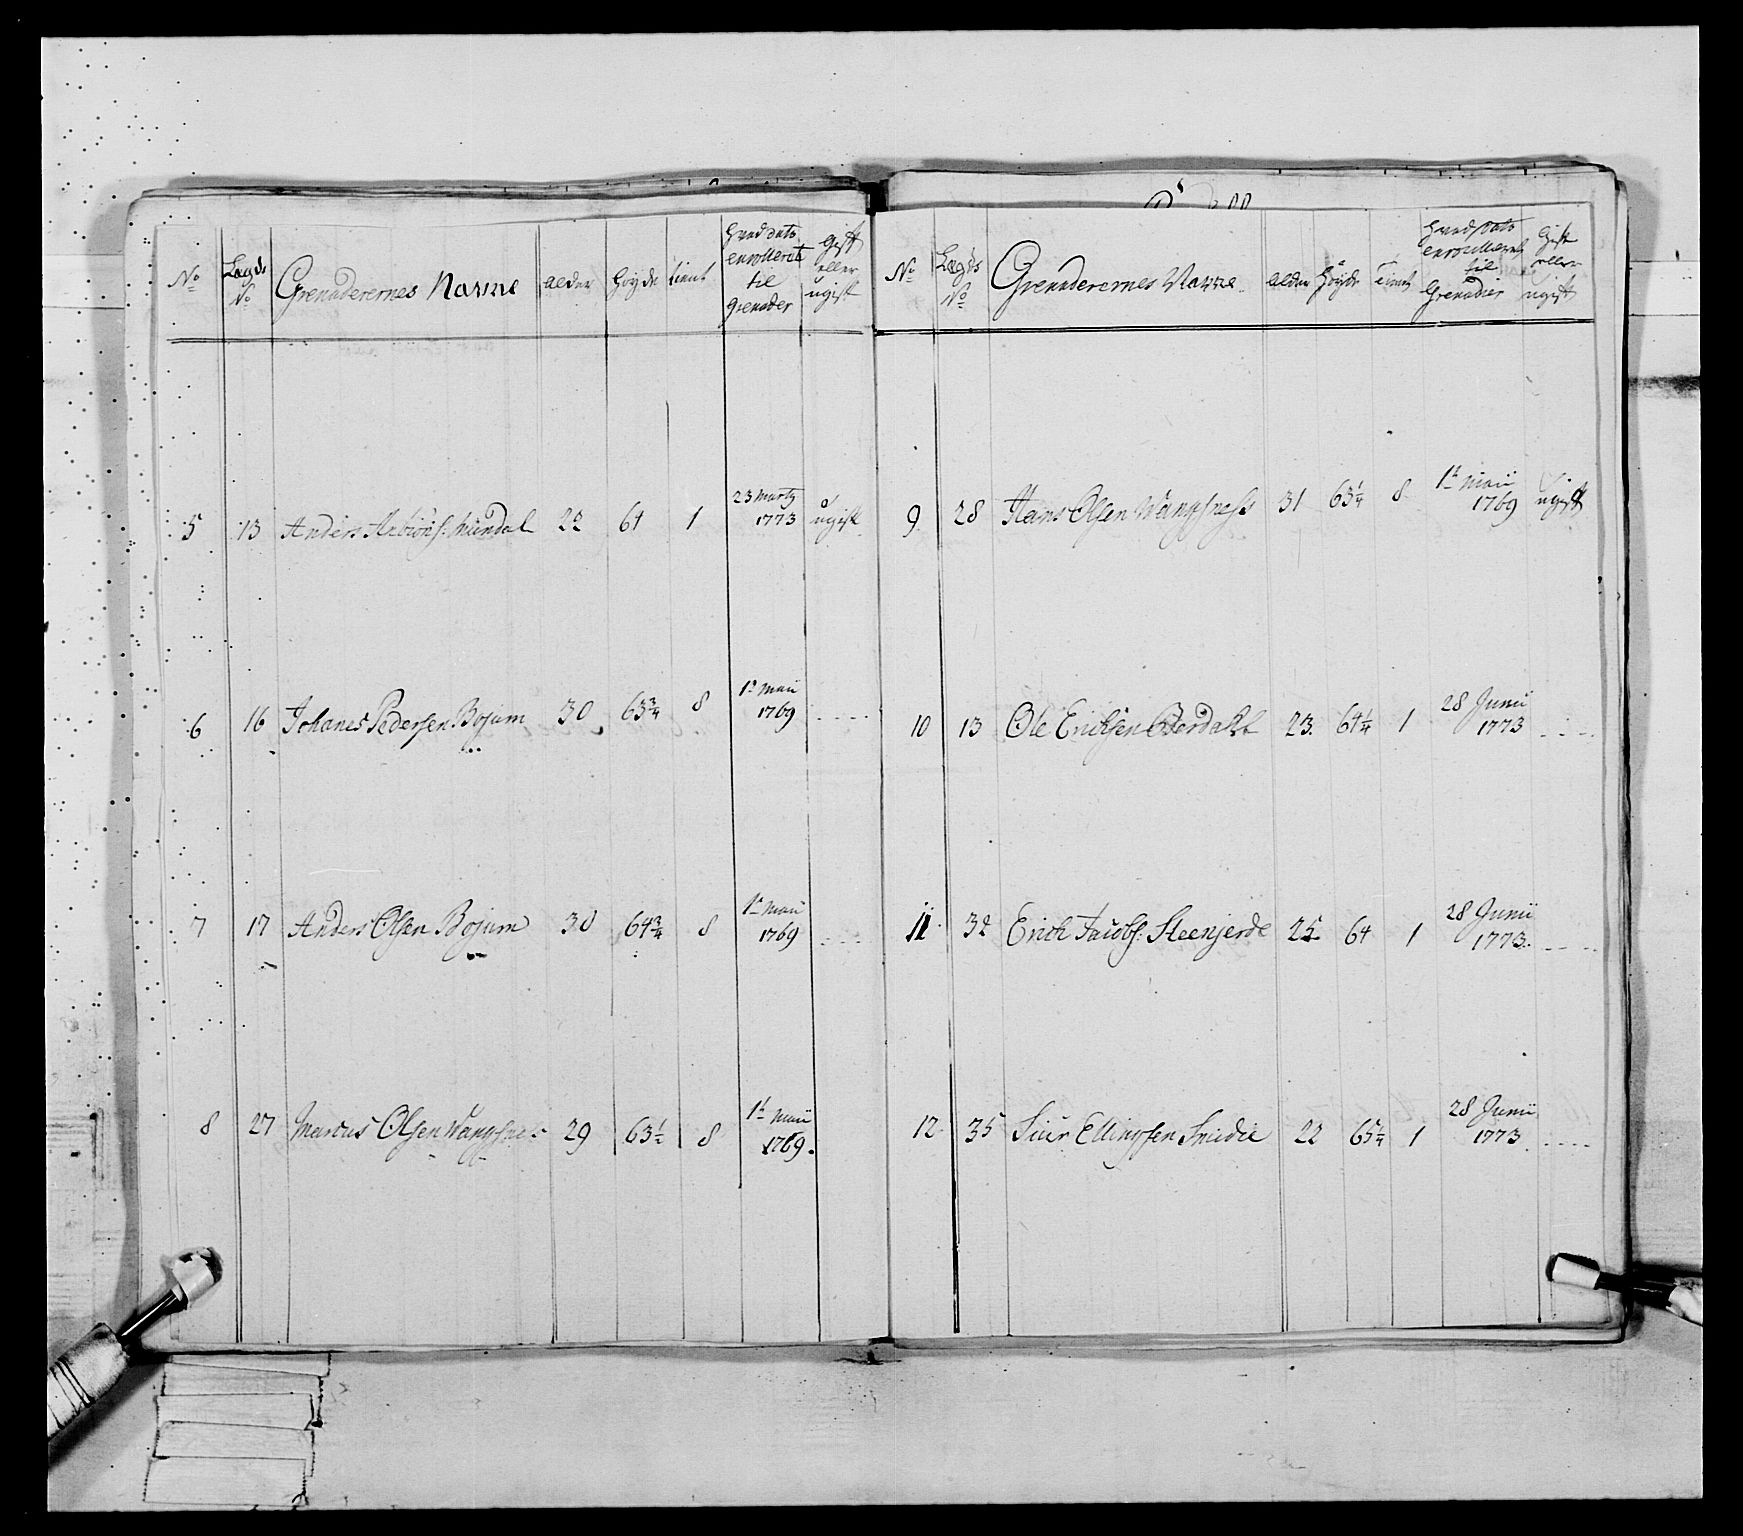 No Lagds No Grenaderernes Navne alder høyde tient hvad dato enrolleret til Grenader Gift eller ugift
5 13 Anders Urbiöns. Mundal 22 64 1 23 Martz 1773 ugift
6 16 Johanes Pedersen Bojum 30 63¾ 8 1t Maii 1769 - - - -
7 17 Anders Olsen Bojum 30 64¾ 8 1t Maii 1769 - - - -
8 27 Marcus Olsen Wangsnes 29 63½ 8 1t Maii 1769.
No Lagds No Grenaderernes Navne. alder høyde tient hvad dato enroulleret til Grenadier Gift eller ugift
9 28 Hans Olsen Wangsness 31 63¼ 8 1t Maii 1769 ugift
10 13 Ole Erichsen Berdahl 23. 64¼ 1 28 Junii 1773 - - - -
11 32 Erich Jacobs. Steenjerde 25 64 1 28 Junii 1773. - - - -
12 35 Siur Ellingsen Smedie 22 65¼ 1 28 Junii 1773 - - - -